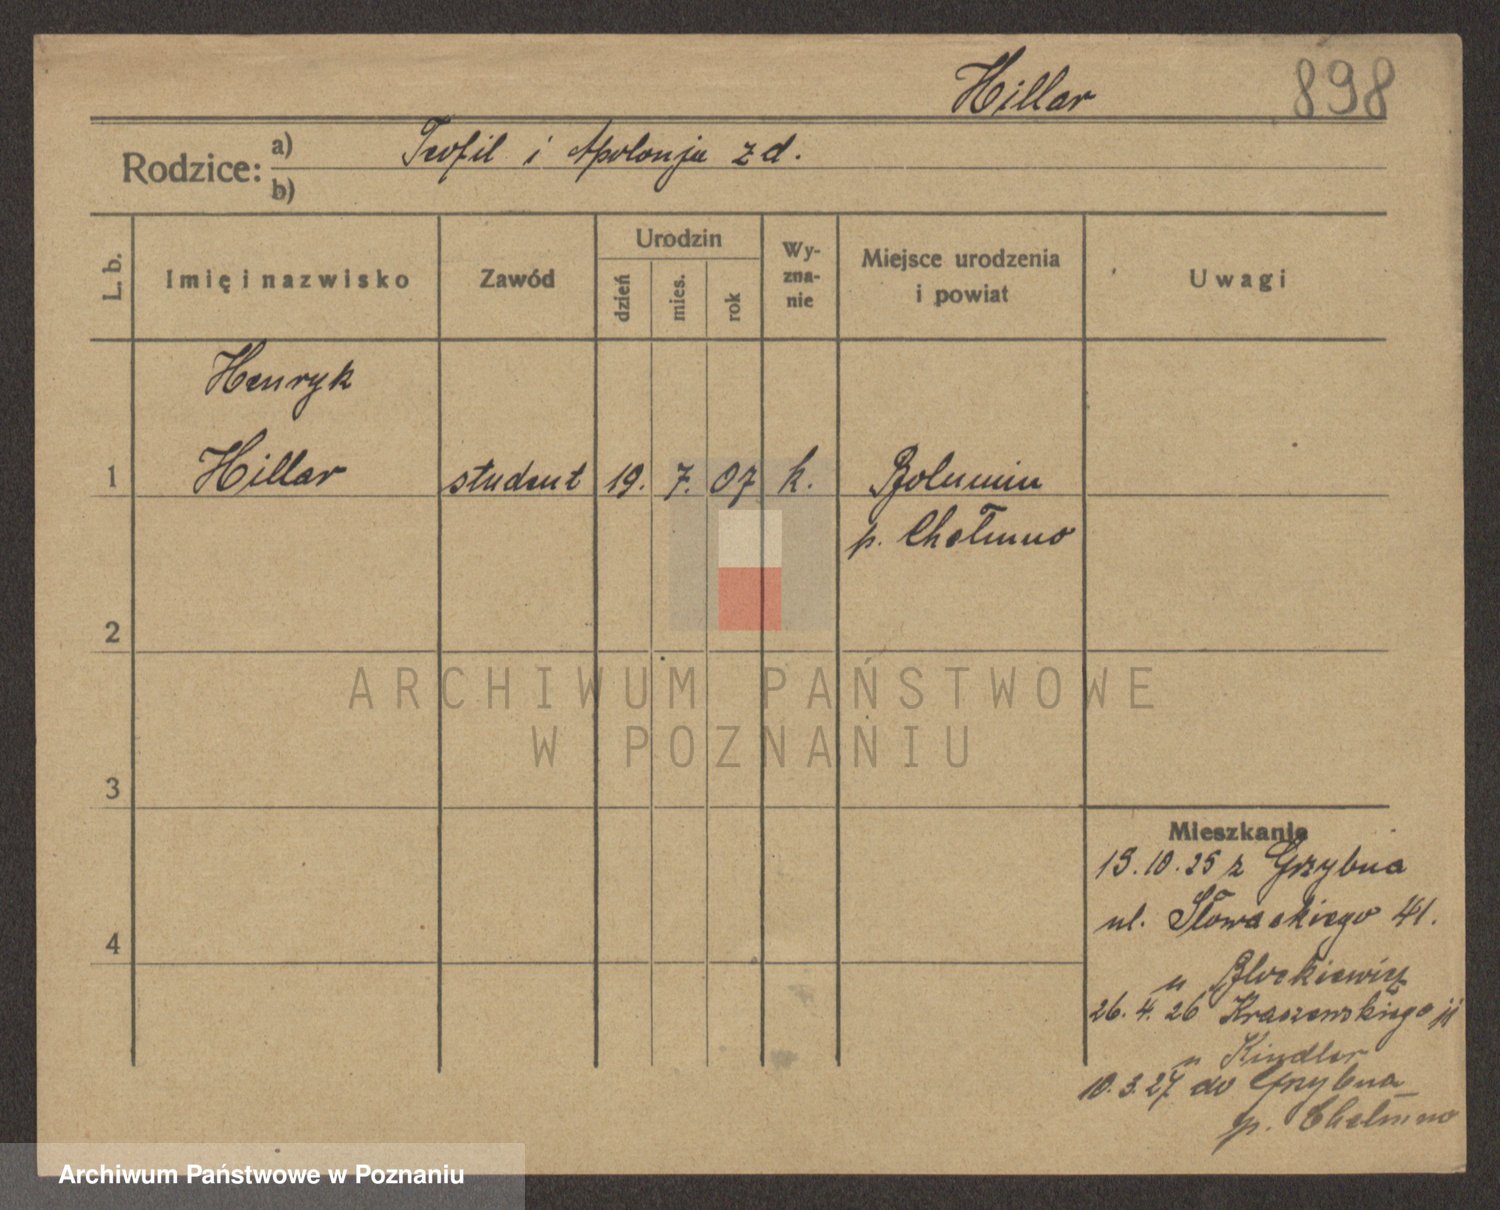 Hillar 898
Rodzice: a) Teofil i Apolonja z d.
b)
L. b. Imię i nazwisko Zawód Urodzin dzień mies. rok Wy-zna-nie Miejsce urodzenia i powiat Uwagi
Henryk
1 Hillar student 19. 7. 07 k. Bolumin
p. Chełmno
2
ARCHIWUM PAŃSTWOWE
W POZNANIU
3
Mieszkanie
13.10.25 z Grzybna
ul. Słowackiego 41.
4
u Blockiewicz
26.4.26 Kraszewskiego
u Kindler
10.3.27 do Grzybna
p. Chełmno
Archiwum Państwowe w Poznaniu